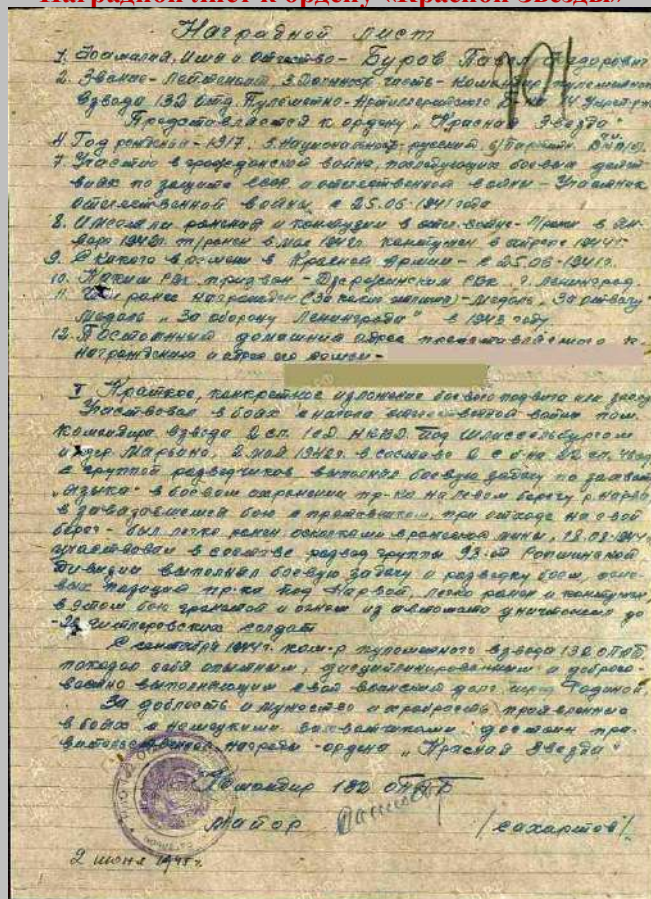 Наградной лист к ордену «Красной Звезды»
Наградной лист
1. Фамилия, Имя и Отчество – Буров Павел Федорович
2. Звание – Лейтенант, 3. Должность, часть – Командир пулеметного
взвода 132 отд. Пулеметно-Артиллерийского
Представляется к ордену „Красная Звезда"
4. Год рождения – 1917, 5. Национальность – русский, 6/Партийн.
7. Участие в гражданской войне, последующих боевых дейст-
виях по защите СССР и отечественной войны – Участник
отечественной войны с 25.06-1941 года
8. Имеет ли ранения и контузии в отеч. войне – ранен в Ян-
варе 1942г. ранен в мае 1942г. контужен в 1944г.
9. С какого времени в Красной Армии – с 25.06-1941г.
10. Каким РВК призван – Дзержинским РВК г. Ленинград.
11. Чем ранее награжден (за какие отличия) – Медаль „За отвагу"
Медаль „За оборону Ленинграда" в 1943 году
12. Постоянный домашний адрес представляемого к
награждению и адрес его семьи –
I Краткое, конкретное изложение боевого подвига или заслуг
Участвовал в боях с начала отечественной войны пом.
командира взвода 2 сп. 1 сд. НКВД под Шлиссельбургом
и дер. Марьино, 2 мая 1942г. в составе
с группой разведчиков выполнял боевую задачу по захвату
„языка" в боевом охранении пр-ка на левом берегу р. Нарва,
в завязавшемся бою с противником, при отходе на свой
берег – был легко ранен осколками вражеской мины,
участвовал в составе развед группы
дивизии выполнял боевую задачу в разведку боем,
вых позиций пр-ка под Нарвой, легко ранен и контужен,
в этом бою гранатой и огнем из автомата уничтожил до
гитлеровских солдат
С сентября 1944г. ком-р пулеметного взвода 132 ОПАБ
показал себя опытным, дисциплинированным и доброс-
вестно выполняющим свой воинский долг перед Родиной.
За доблесть и мужество и храбрость проявленные
в боях с немецкими захватчиками достоин пра-
вительственной награды – ордена „Красная Звезда"
Командир 132 ОПАБ
Майор
2 июня 1945г.